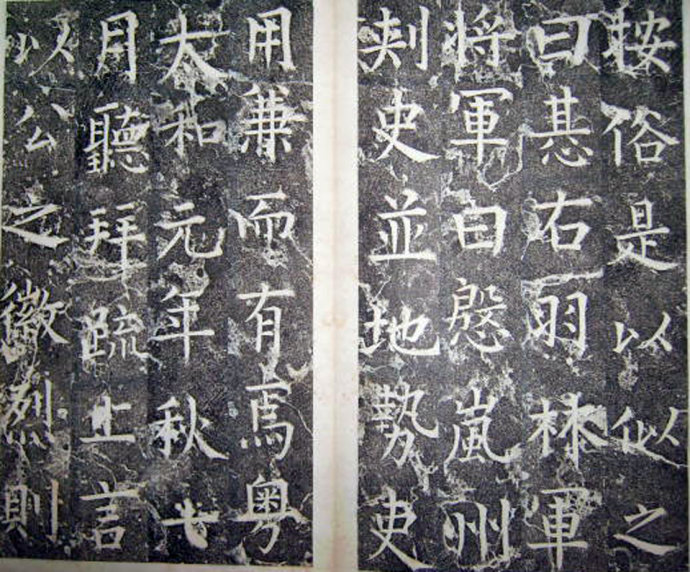 按俗是以似之
曰惎右羽林軍
將軍曰慇嵐州
刾史並地勢吏
用兼而有焉粤
大和元年秋七
月聽拜疏上言
以公之徽烈則